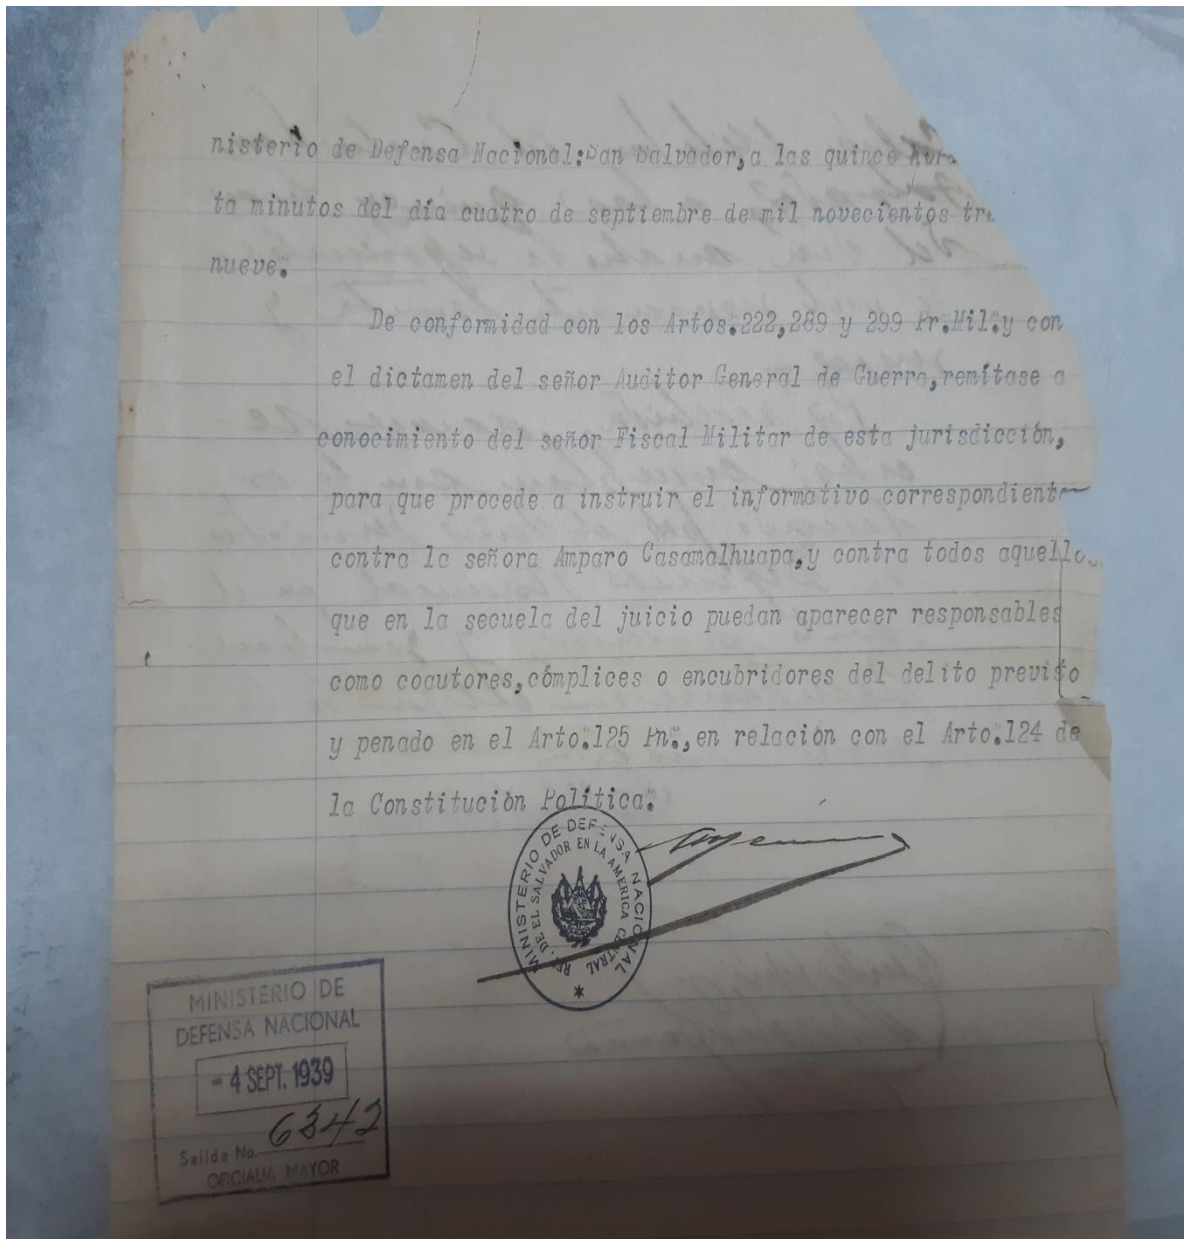 nisterio de Defensa Nacional:San Salvador,a las quince hora
ta minutos del día cuatro de septiembre de mil novecientos tre
nueve.
De conformidad con los Artos.222,289 y 299 Pr.Mil.y con
el dictamen del señor Auditor General de Guerra,remítase a
conocimiento del señor Fiscal Militar de esta jurisdicción,
para que procede a instruir el informativo correspondiente
contra la señora Amparo Casamalhuapa,y contra todos aquello
que en la secuela del juicio puedan aparecer responsables
como coautores,cómplices o encubridores del delito previsto
y penado en el Arto.125 Pn.,en relación con el Arto.124 de
la Constitución Política.
MINISTERIO DE DEFENSA NACIONAL
REP. DE EL SALVADOR EN LA AMERICA CENTRAL
MINISTERIO DE
DEFENSA NACIONAL
- 4 SEPT. 1939
Salida No. 6342
OFICIALIA MAYOR